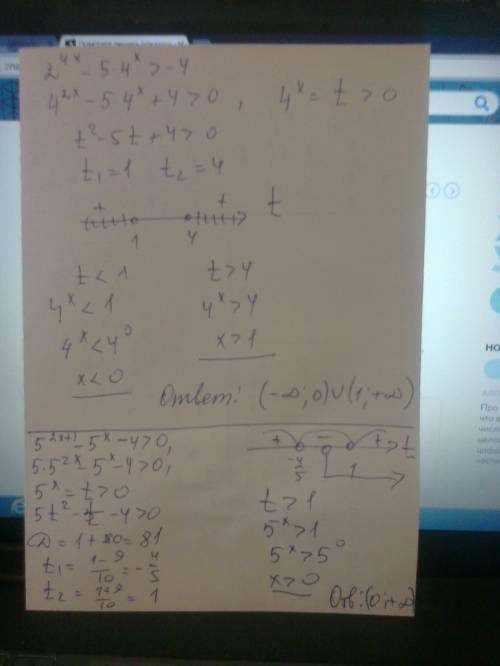 2^{4x} - 5·4^x > -4
4^{2x} - 5·4^x + 4 > 0 , 4^x = t > 0
t^2 - 5t + 4 > 0
t_1 = 1 t_2 = 4
+ + t
1 4
t < 1 t > 4
4^x < 1 4^x > 4
4^x < 4^0 x > 1
x < 0
Ответ: (-∞; 0) ∪ (1; +∞)
5^{2x+1} - 5^x - 4 > 0,
5·5^{2x} - 5^x - 4 > 0,
5^x = t > 0
5t^2 - t - 4 > 0
D = 1 + 80 = 81
t_1 = \frac{1-9}{10} = -\frac{4}{5}
t_2 = \frac{1+9}{10} = 1
+ - + t
-\frac{4}{5} 1
t > 1
5^x > 1
5^x > 5^0
x > 0
Отв: (0; +∞)
НО
Про
что
числ